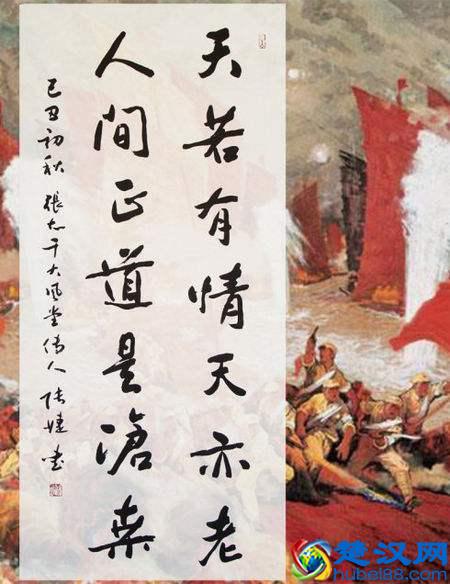 天若有情天亦老
人間正道是滄桑
己丑初秋 張大千大风堂传人
楚汉网
hubei88.com